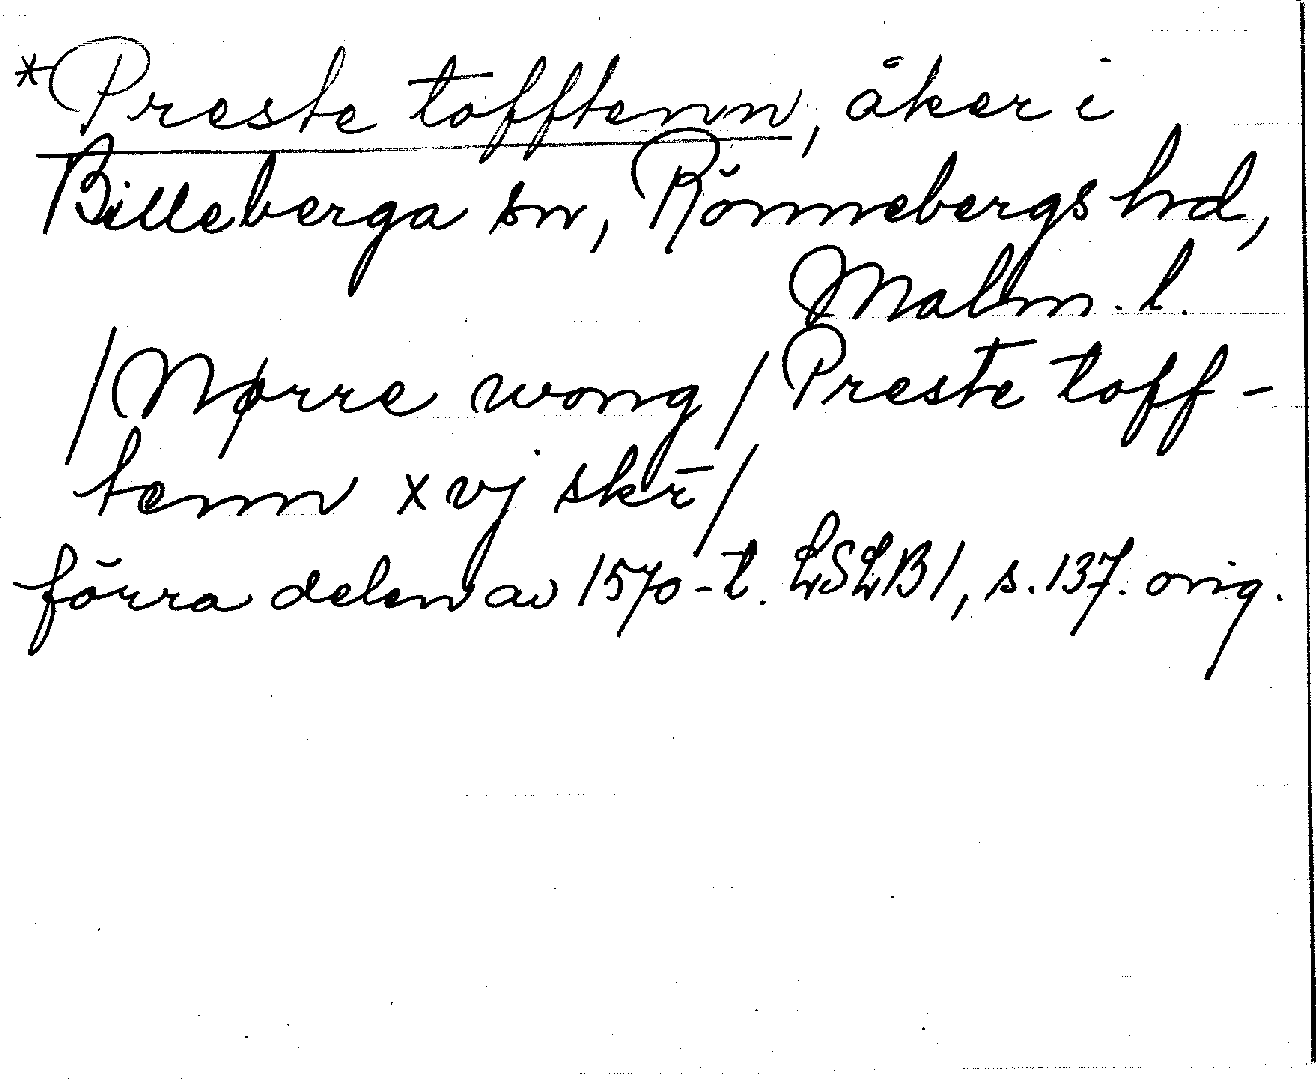 *Preste tofftenn, åker i
Billeberga sn, Rönnebergs hd,
Malm. l.
/Nørre wong/ Preste toff-
tenn xvj skr̄/
förra delen av 1570-t. LSLB1, s. 137. orig.